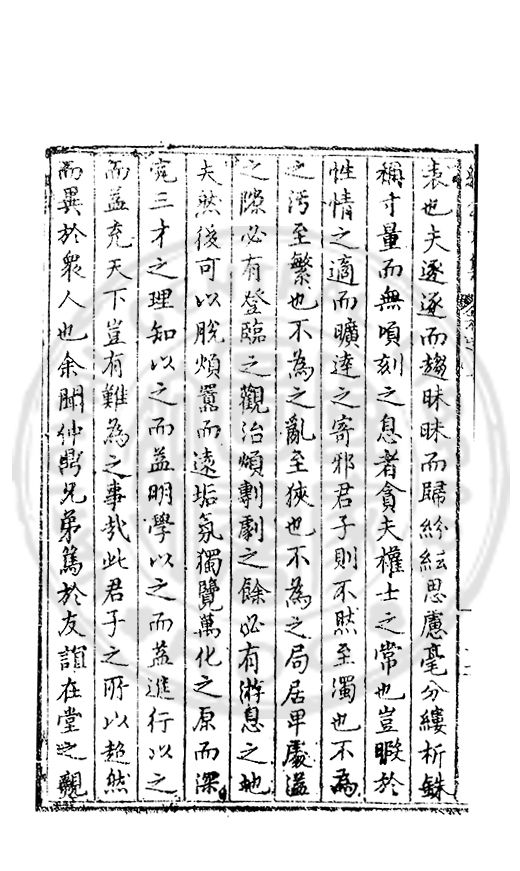 表也夫逐逐而趨昧昧而歸紛紜思慮毫分縷析銖
稱寸量而無頃刻之息者貪夫權士之常也豈暇於
性情之適而曠達之寄邪君子則不然至濁也不為
之汚至繁也不為之亂至狹也不為之局居卑處溢
之隙必有登臨之觀治煩剸劇之餘必有游息之地
夫然後可以脫煩囂而遠垢氛獨覽萬化之原而深
究三才之理知以之而益明學以之而益進行以之
而益充天下豈有難為之事哉此君子之所以超然
而異於衆人也余聞仲鼎兄弟篤於友誼在堂之親